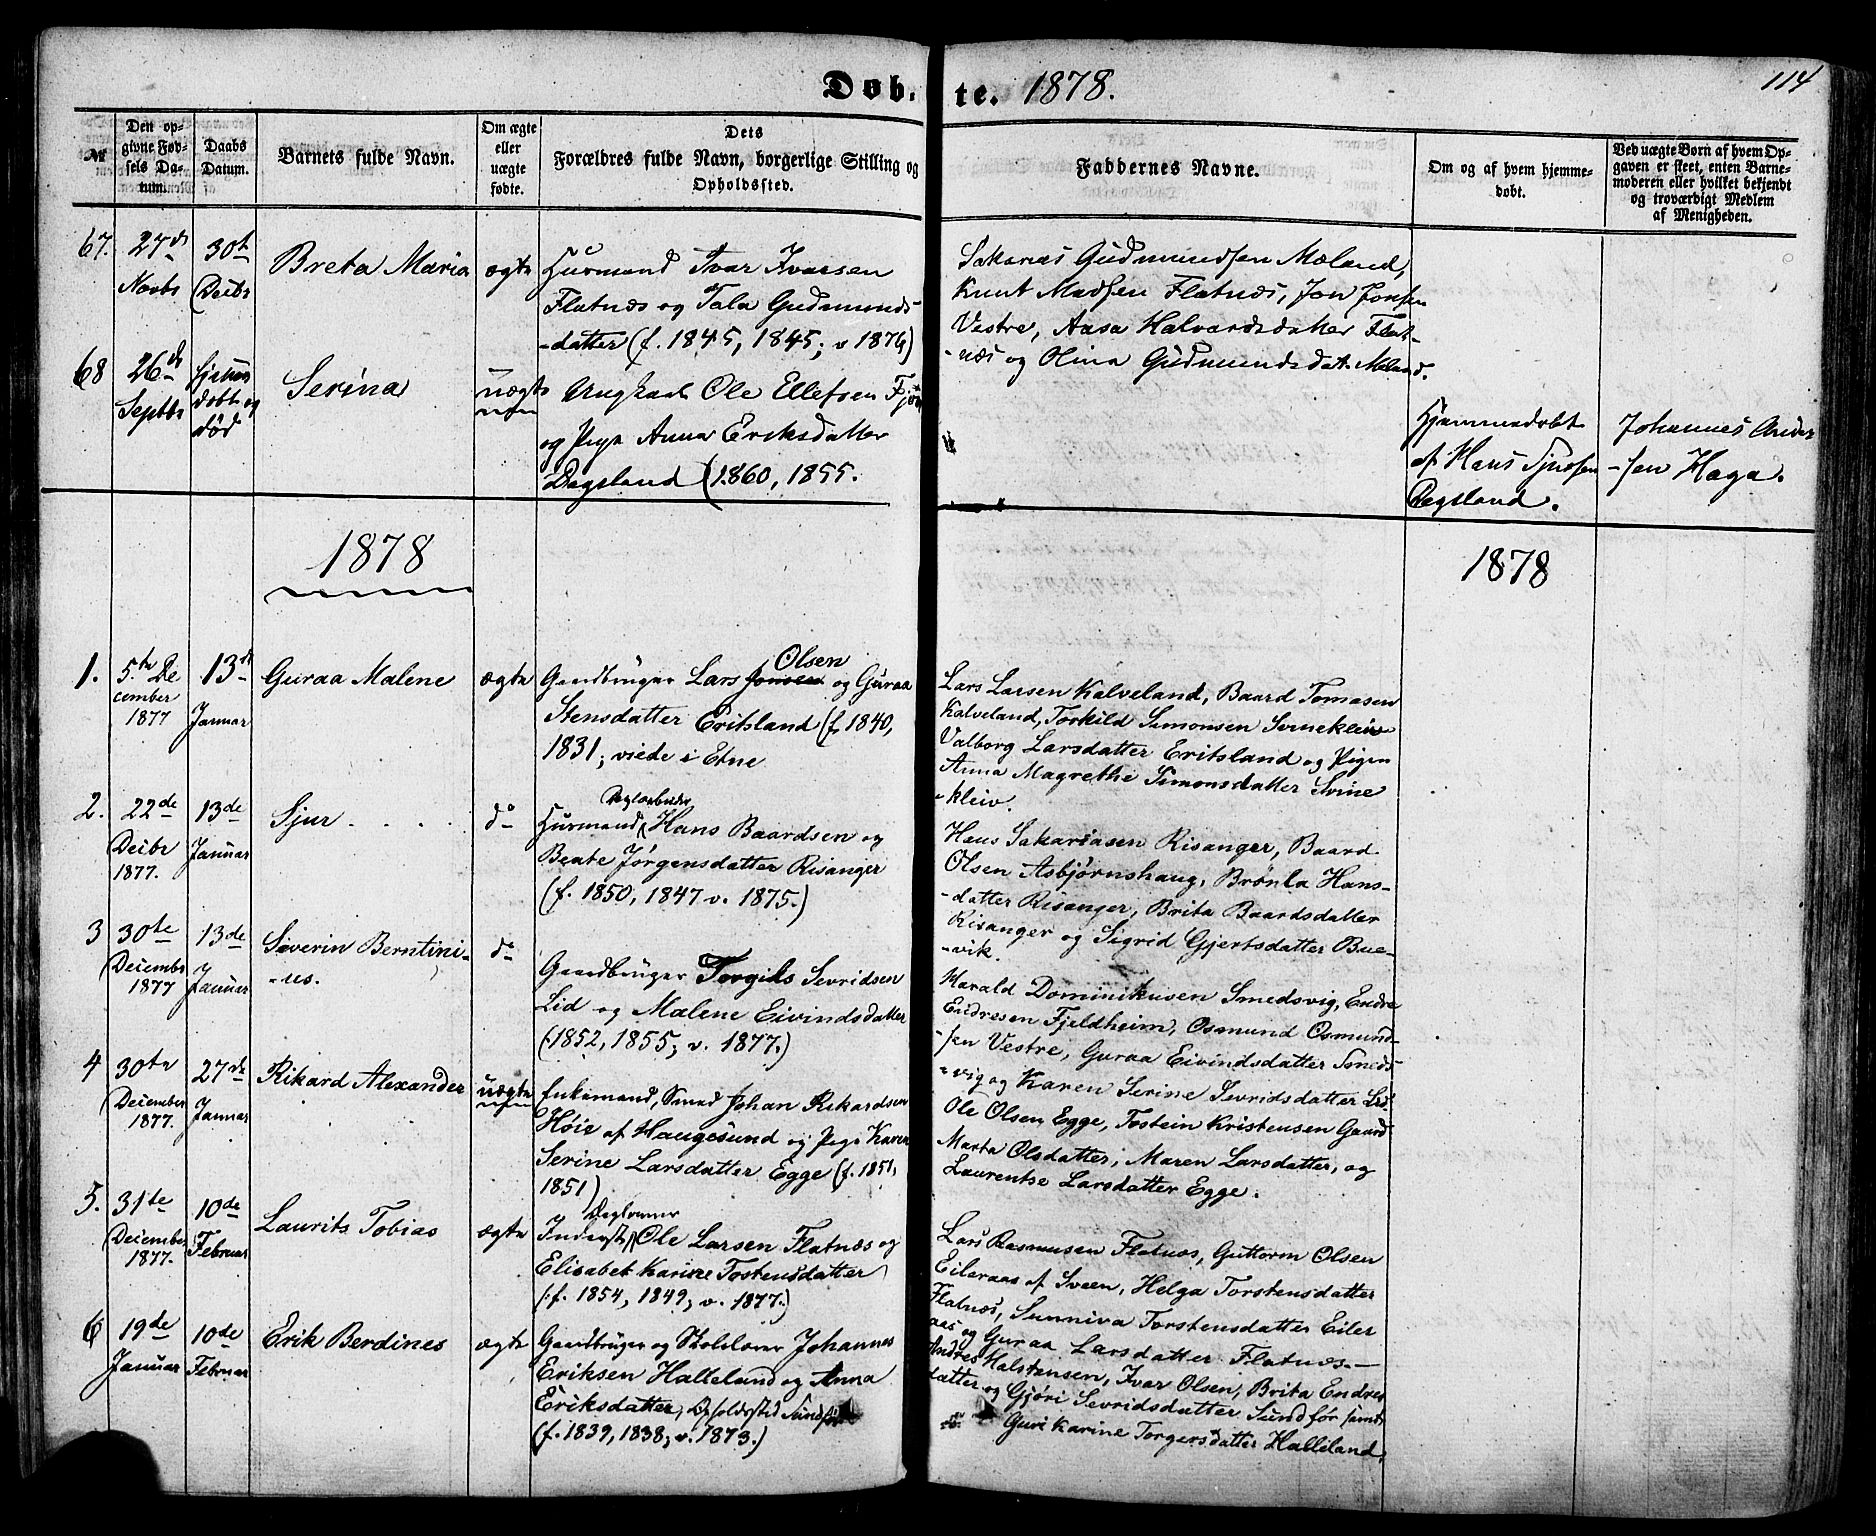 Døb-te. 1878.
114
№
Den op-
givne Fød-
sels Da-
tum.
Daabs
Datum.
Barnets fulde Navn.
Om ægte
eller
uægte
fødte.
Dets
Forældres fulde Navn, borgerlige Stilling og
Opholdssted.
Faddernes Navne.
Om og af hvem hjemme-
døbt.
Ved uægte Børn af hvem Op-
gaven er skeet, enten Barne-
moderen eller hvilket bekjendt
og troværdigt Medlem
af Menigheden.
67. 27de
Novbr
30te
Decbr
Breta Maria
ægte
Huusmand Ivar Ivarsen
Flatnæs og Tala Gudmunds-
-datter (f. 1845, 1845; v 1876)
Sakarias Gudmundsen Mæland,
Knut Madsen Flatnæs, Jon Jonsen
Vestre, Aasa Halvardsdatter Flat-
-næs og Olina Gudmundsdat. Mæland.
68 26de
Septbr
Hjemme
døbt og
død
Serina
uægte
Ungkarl Ole Ellefsen
og Pige Anna Eriksdatter
Dagsland (1860, 1855.
Hjemmedøbt
af Hans Sjursen
Dagsland.
Johannes Ander
-sen Haga.
1878
1878
1. 5te De
cember
1877
13de
Januar
Guraa Malene
ægte
Olsen
Gaardbruger Lars Jonsen og Guraa
Stensdatter Eritsland (f. 1840,
1831; viede i Etne
Lars Larsen Kalveland, Baard Tomasen
Kalveland, Torkild Simonsen
Valborg Larsdatter Eritsland og Pigen
Anna Magrethe Simonsdatter Svine
-kleiv.
2. 22de
Decbr
1877.
13de
Januar
Sjur
do
Huusmand Hans Baardsen og
Beate Jørgensdatter Risanger
(f. 1850, 1847 v. 1875.)
Hans Sakariasen Risanger, Baard
Olsen Asbjørnshaug, Brønla Hans-
-datter Risanger, Brita Baardsdatter
Risanger og Sigrid Gjertsdatter Bue-
-vik.
3 30te
Decembr
1877
13de
Januar
Severin Berntini-
-us.
do
Gaardbruger Torgils Sevridsen
Lid og Malene Eivindsdatter
(1852, 1855; v. 1877.)
Harald Dominikusen Smedsvig, Endre
Endresen Fjeldheim, Osmund Osmund-
-sen Vestre, Guraa Eivindsdatter Smeds-
-vig og Karen Serine Sevridsdatter Lid.
4 30te
December
1877.
27de
Januar
Rikard Alexander
uægte
Enkemand, Smed Johan Rikardsen
Høie af Haugesund og Pige Karen
Serine Larsdatter Egge (f. 1851,
1851)
Ole Olsen Egge, Tostein Kristensen Gaard
Marta Olsdatter, Maren Larsdatter, og
Laurentse Larsdatter Egge.
5. 31te
December
1877.
10de
Februar
Laurits Tobias
ægte
Daglønner
Inderst Ole Larsen Flatnæs og
Elisabet Karine Tostensdatter
(f. 1854, 1849, v. 1877.)
Lars Rasmusen Flatnæs, Guttorm Olsen
Eileraas af Sveen, Helga Torstensdatter
Flatnæs, Sunniva Torstensdatter Eiler
aas og Guraa Larsdatter Flatnæs.-
6 19de
Januar
10de
Februar
Erik Berdines
ægte
Gaardbruger og Skolelærer Johannes
Eriksen Halleland og Anna
Eriksdatter, Opholdssted Sundfør
(f. 1839, 1838; v. 1873.)
Andres Halstensen, Ivar Olsen, Brita Endres
datter og Gjøri Sevridsdatter Sundfør samt
Guri Karine Torgersdatter Halleland,